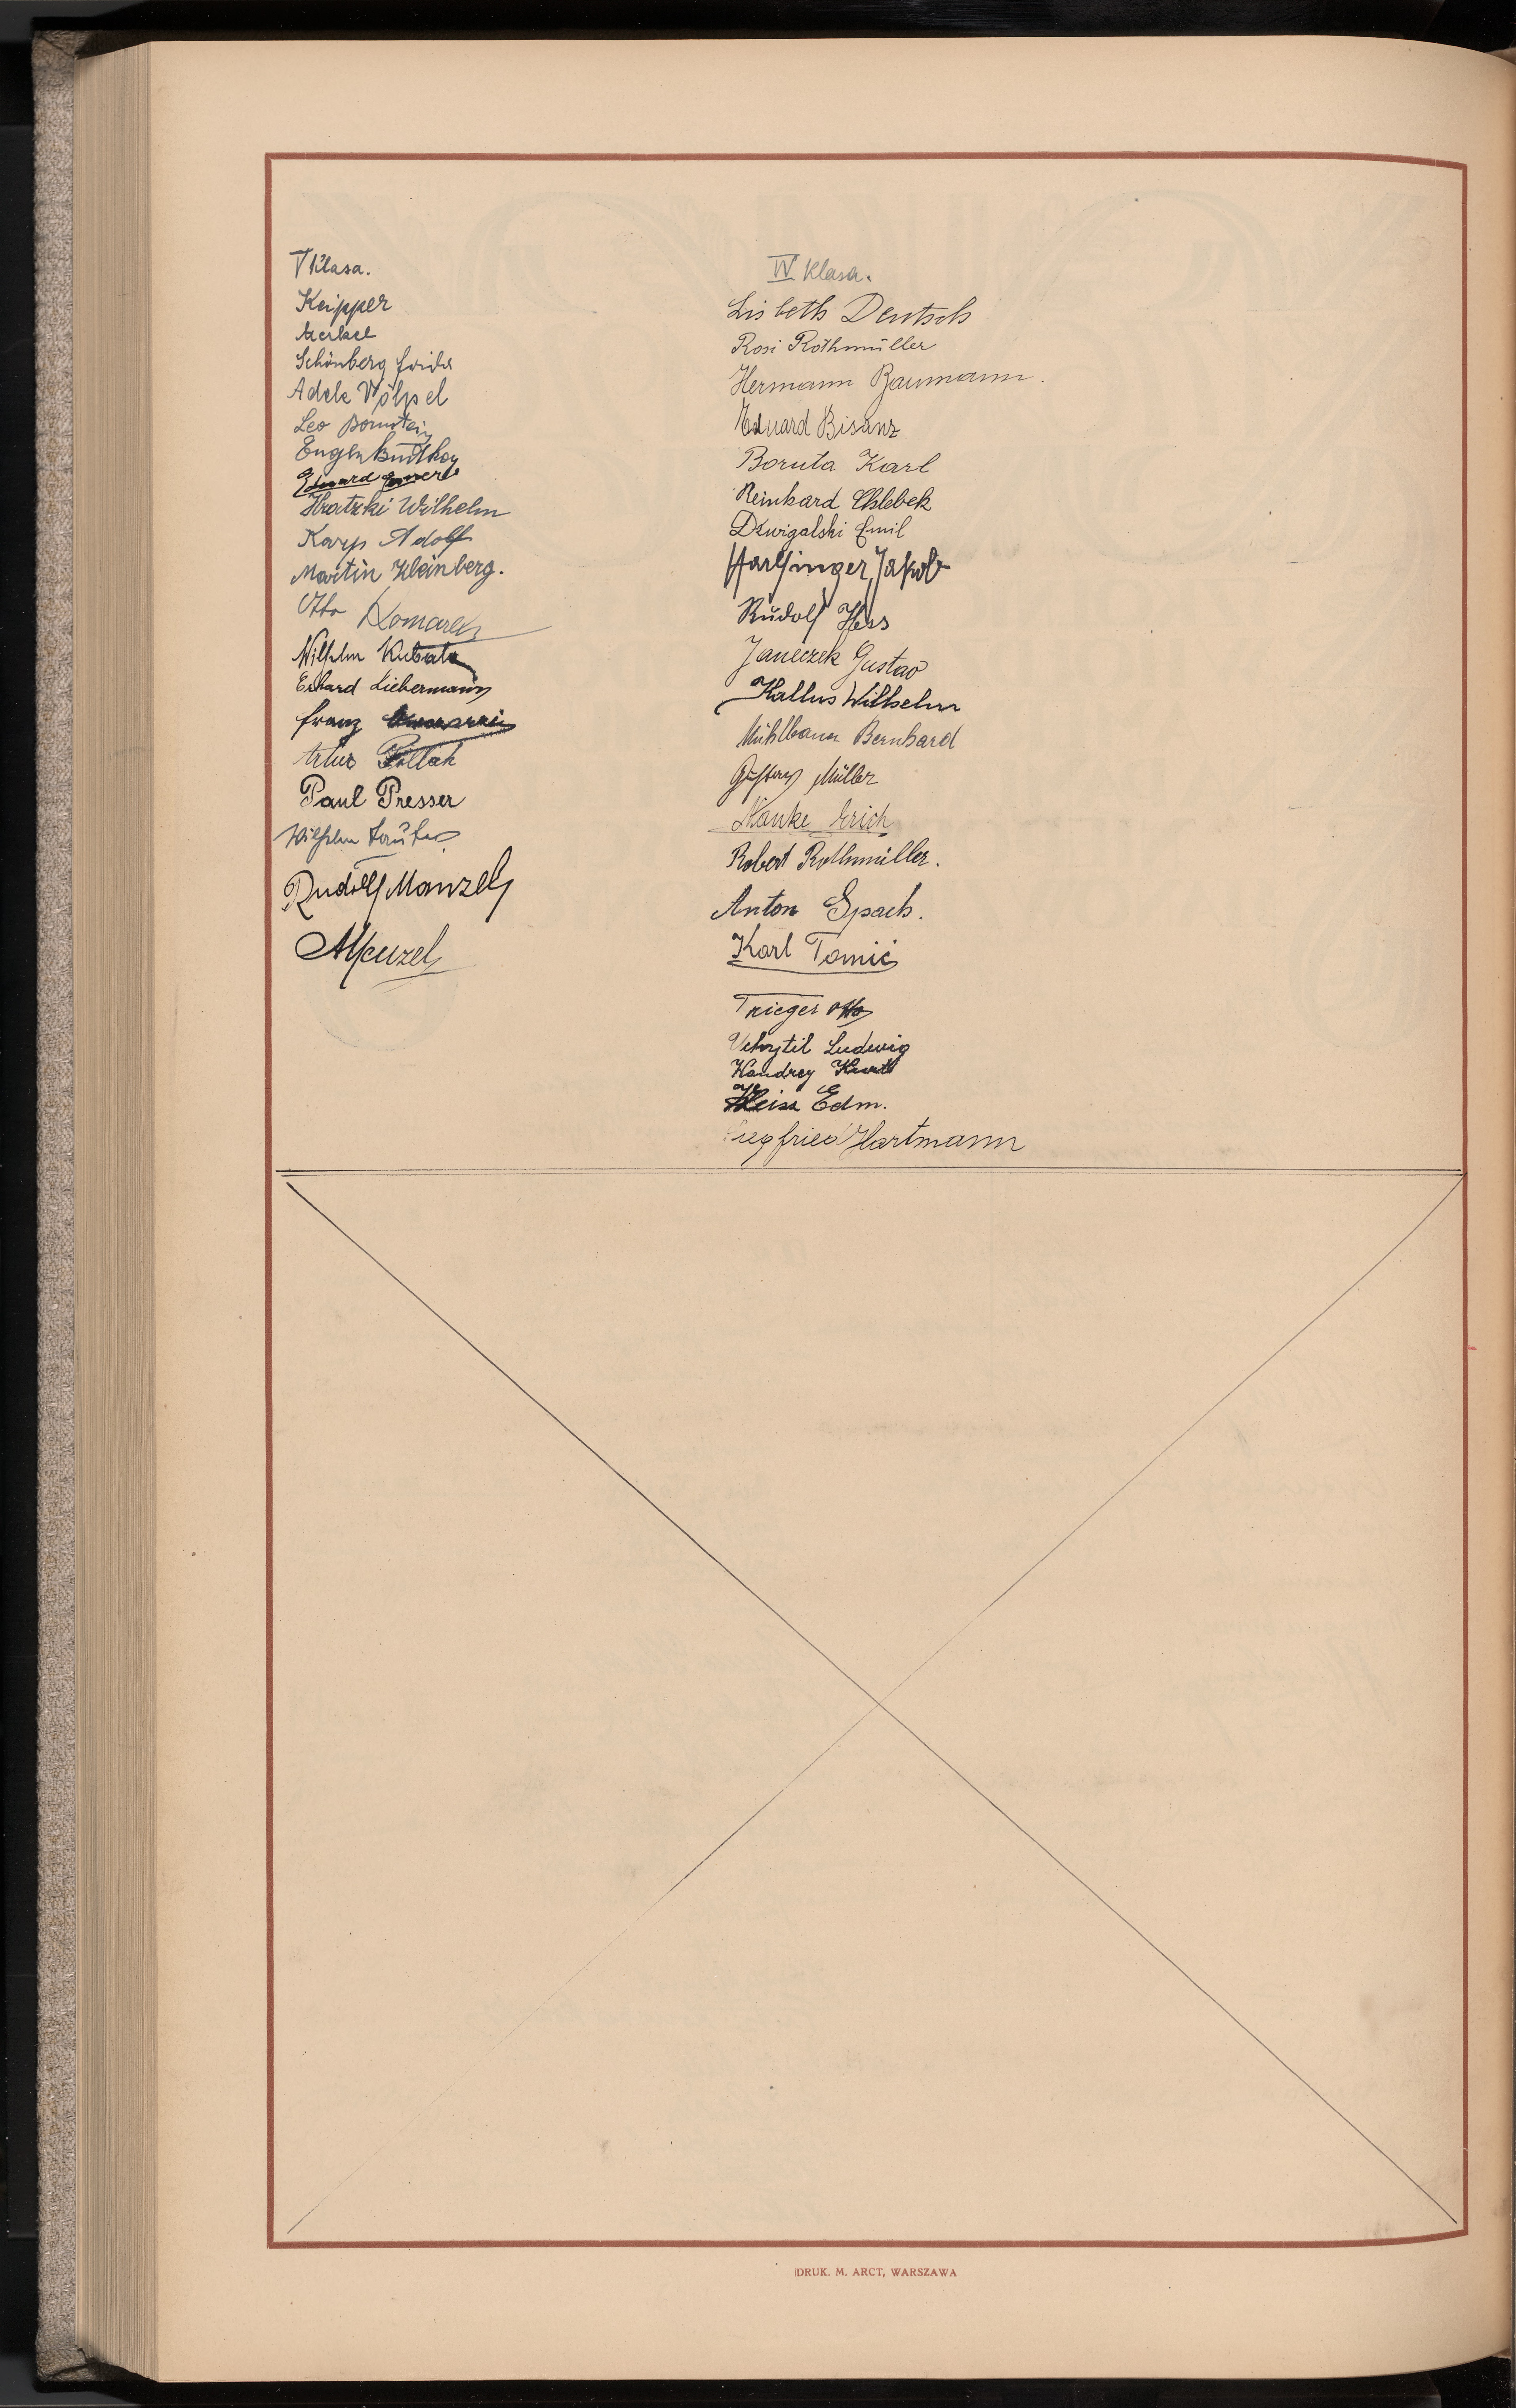 V Klasa.
Keipper
Schönberg Frida
Adele Völpel
Leo Bornstein
Eugen
Eduard
Hratzki Wilhelm
Karp Adolf
Martin Kleinberg.
Otto Komarek
Wilhelm Kubala
Erhard Liebermann
Franz
Artur Pollak
Paul Presser
Wilhelm
Rudolf Manzel
AMenzel
IV Klasa.
Lisbeth Deutsch
Rosi Rothmüller
Hermann Baumann.
Eduard Bisanz
Boruta Karl
Reinhard Chlebek
Dzwigalski Emil
Harlfinger Jakob
Rudolf Hess
Janeczek Gustav
Kallus Wilhelm
Mühlbauer Bernhard
Gustav Müller
Nanke Erich
Robert Rothmüller.
Anton Spach.
Karl Tomić
Trieger Otto
Vchytil Ludwig
Wondrey Kurt
Weiss Edm.
Siegfried Hartmann
DRUK. M. ARCT, WARSZAWA